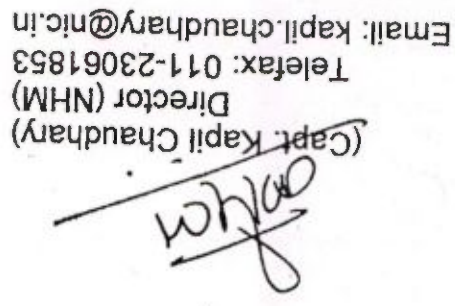 (Capt. Kapil Chaudhary)
Director (NHM)
Telefax: 011-23061853
Email: kapil.chaudhary@nic.in